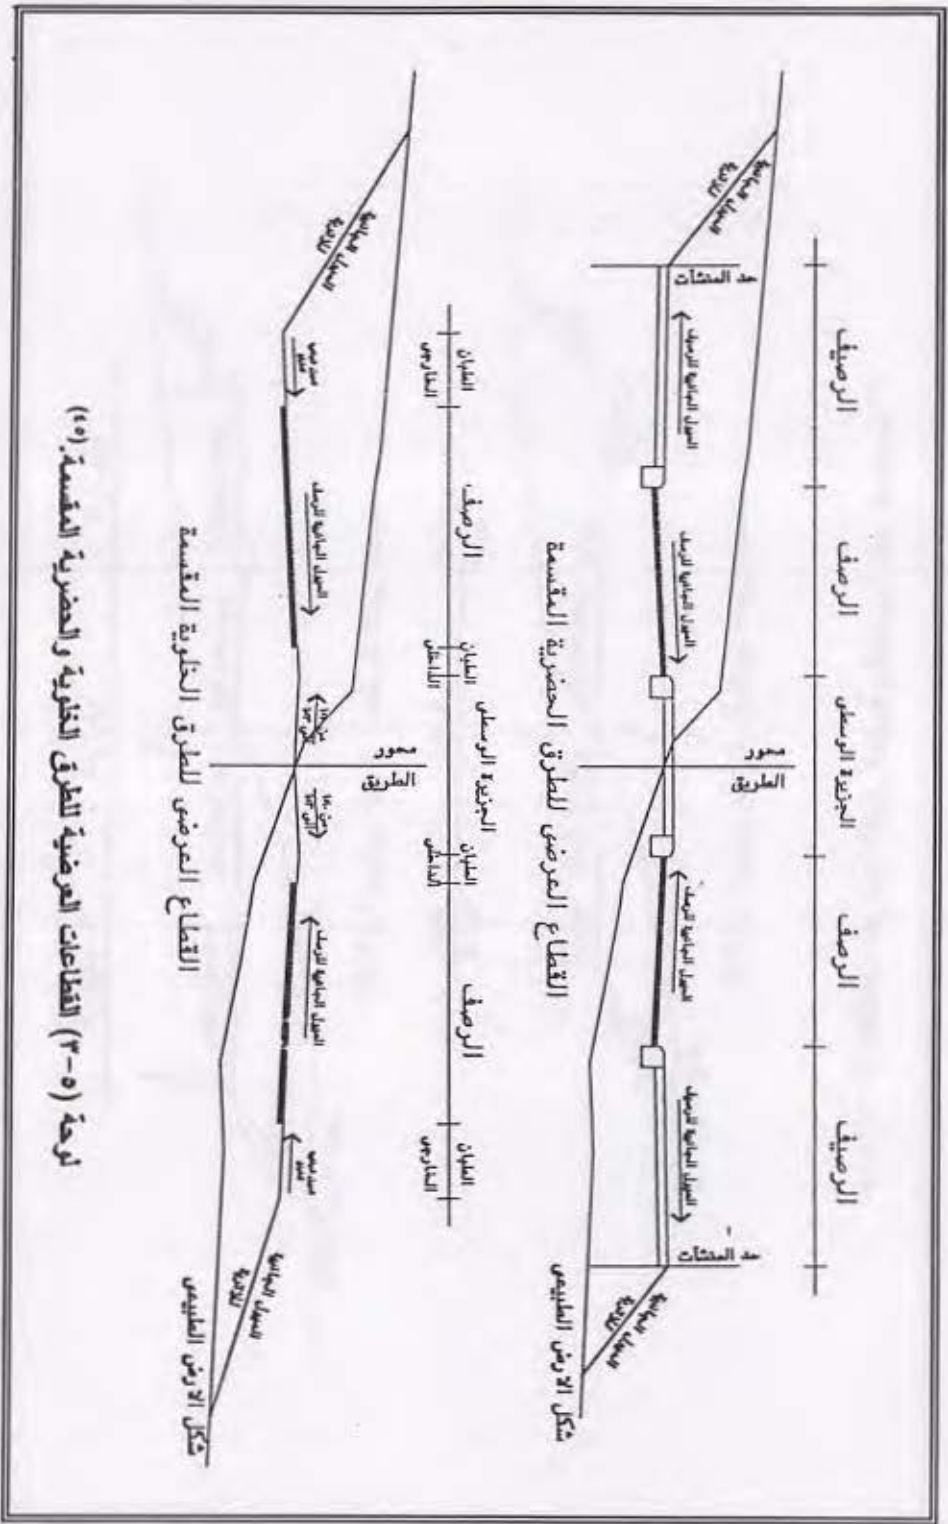 الرصيف
الرصف
الجزيرة الوسطى
الرصف
الرصيف
حد المنشآت
حد المنشآت
الميول الجانبية للاتربة
الميول الجانبية للرصيف
الميول الجانبية للرصف
محور الطريق
الميول الجانبية للرصف
الميول الجانبية للرصيف
الميول الجانبية للاتربة
شكل الارض الطبيعى
القطاع العرضى للطرق الحضرية المقسمة
الطبان الخارجى
الرصف
الطبان الداخلى
الجزيرة الوسطى
الطبان الداخلى
الرصف
الطبان الخارجى
الميول الجانبية للاتربة
الميول الجانبية للرصف
محور الطريق
الميول الجانبية للرصف
الميول الجانبية للاتربة
شكل الارض الطبيعى
القطاع العرضى للطرق الخلوية المقسمة
لوحة (٥-٣) القطاعات العرضية للطرق الخلوية والحضرية المقسمة.(٤٥)